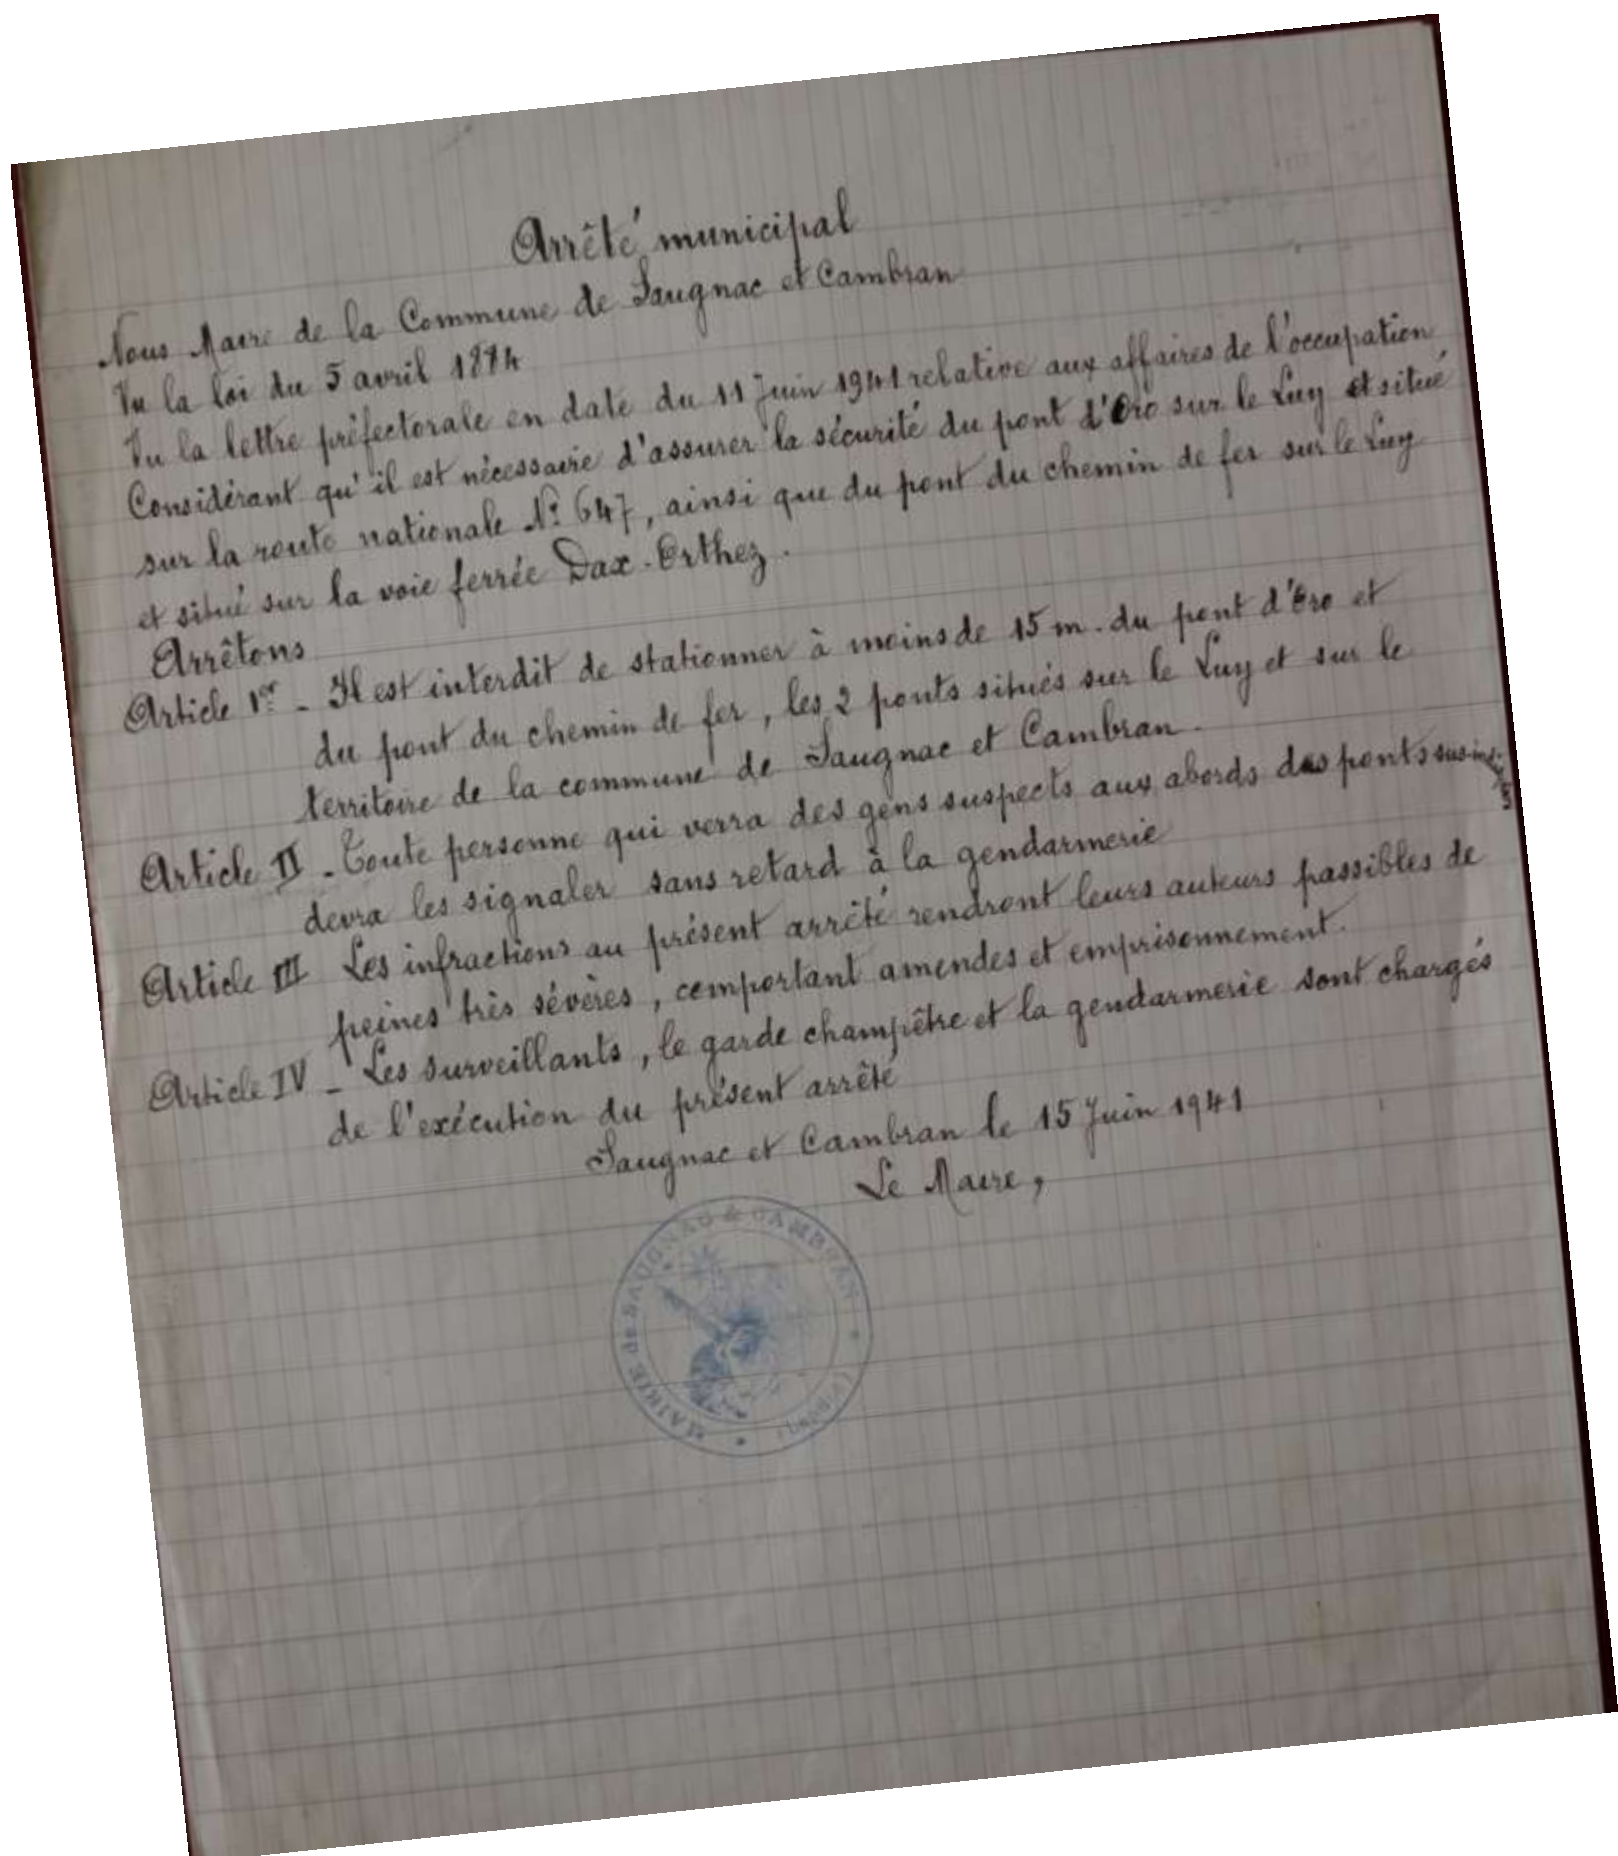 Arrêté municipal
Nous Maire de la Commune de Saugnac et Cambran
Vu la loi du 5 avril 1884
Vu la lettre préfectorale en date du 11 Juin 1941 relative aux affaires de l'occupation
Considérant qu'il est nécessaire d'assurer la sécurité du pont d'Oro sur le Luy et situé
sur la route nationale N° 647, ainsi que du pont du chemin de fer sur le Luy
et situé sur la voie ferrée Dax-Orthez.
Arrêtons
Article 1er - Il est interdit de stationner à moins de 15 m. du pont d'Oro et
du pont du chemin de fer, les 2 ponts situés sur le Luy et sur le
territoire de la commune de Saugnac et Cambran.
Article II - Toute personne qui verra des gens suspects aux abords des ponts sus-indiqués
devra les signaler sans retard à la gendarmerie
Article III Les infractions au présent arrêté rendront leurs auteurs passibles de
peines très sévères, comportant amendes et emprisonnement.
Article IV - Les surveillants, le garde champêtre et la gendarmerie sont chargés
de l'exécution du présent arrêté
Saugnac et Cambran le 15 Juin 1941
Le Maire,
MAIRIE de SAUGNAC & CAMBRAN (Landes)